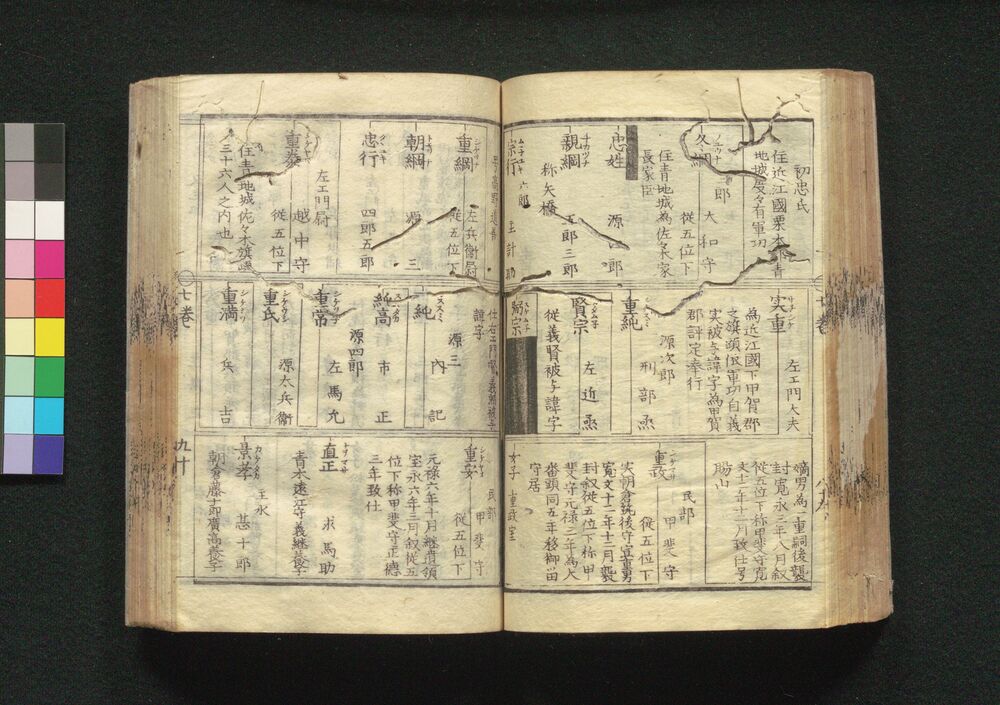 初忠氏
住近江國栗本郡青
地城度々有軍功
冬綱
大和守
従五位下
住青地城為佐々木家
長家臣
忠姓
源四郎
親綱
五郎三郎
称矢橋
宗行
六郎
主計助
実重
左エ門大夫
為近江國下甲賀郡
之旗頭依軍功自義
実被与諱字為甲賀
郡評定奉行
源次郎
重純
刑部烝
賢宗
左近烝
従義賢被与諱字
賜宗
嫡男為一重嗣後襲
封寛永三年八月叙
従五位下称甲斐守寛
文十二年十二月致仕号
陽山
民部
重政
甲斐守
従五位下
実朝倉筑後守宣重男
寛文十二年十二月襲
封叙従五位下称甲
斐守元禄三年為大
番頭同五年移御留
守居
女子 重政室
重綱
左兵衛尉
従五位下
朝綱
源三
忠行
四郎五郎
左エ門尉
重泰
越中守
従五位下
住青地城佐々木旗頭
三十六人之内也
諱字
源三
純
内記
純高
市正
源四郎
重常
左馬允
重氏
源太兵衛
重満
兵吉
民部
重安
甲斐守
従五位下
元禄六年十月継遺領
宝永六年三月叙従五
位下称甲斐守正徳
三年致仕
直正
求馬助
青木遠江守義継養子
主水
景孝
甚十郎
朝倉藤十郎廣高養子
七巻
九十